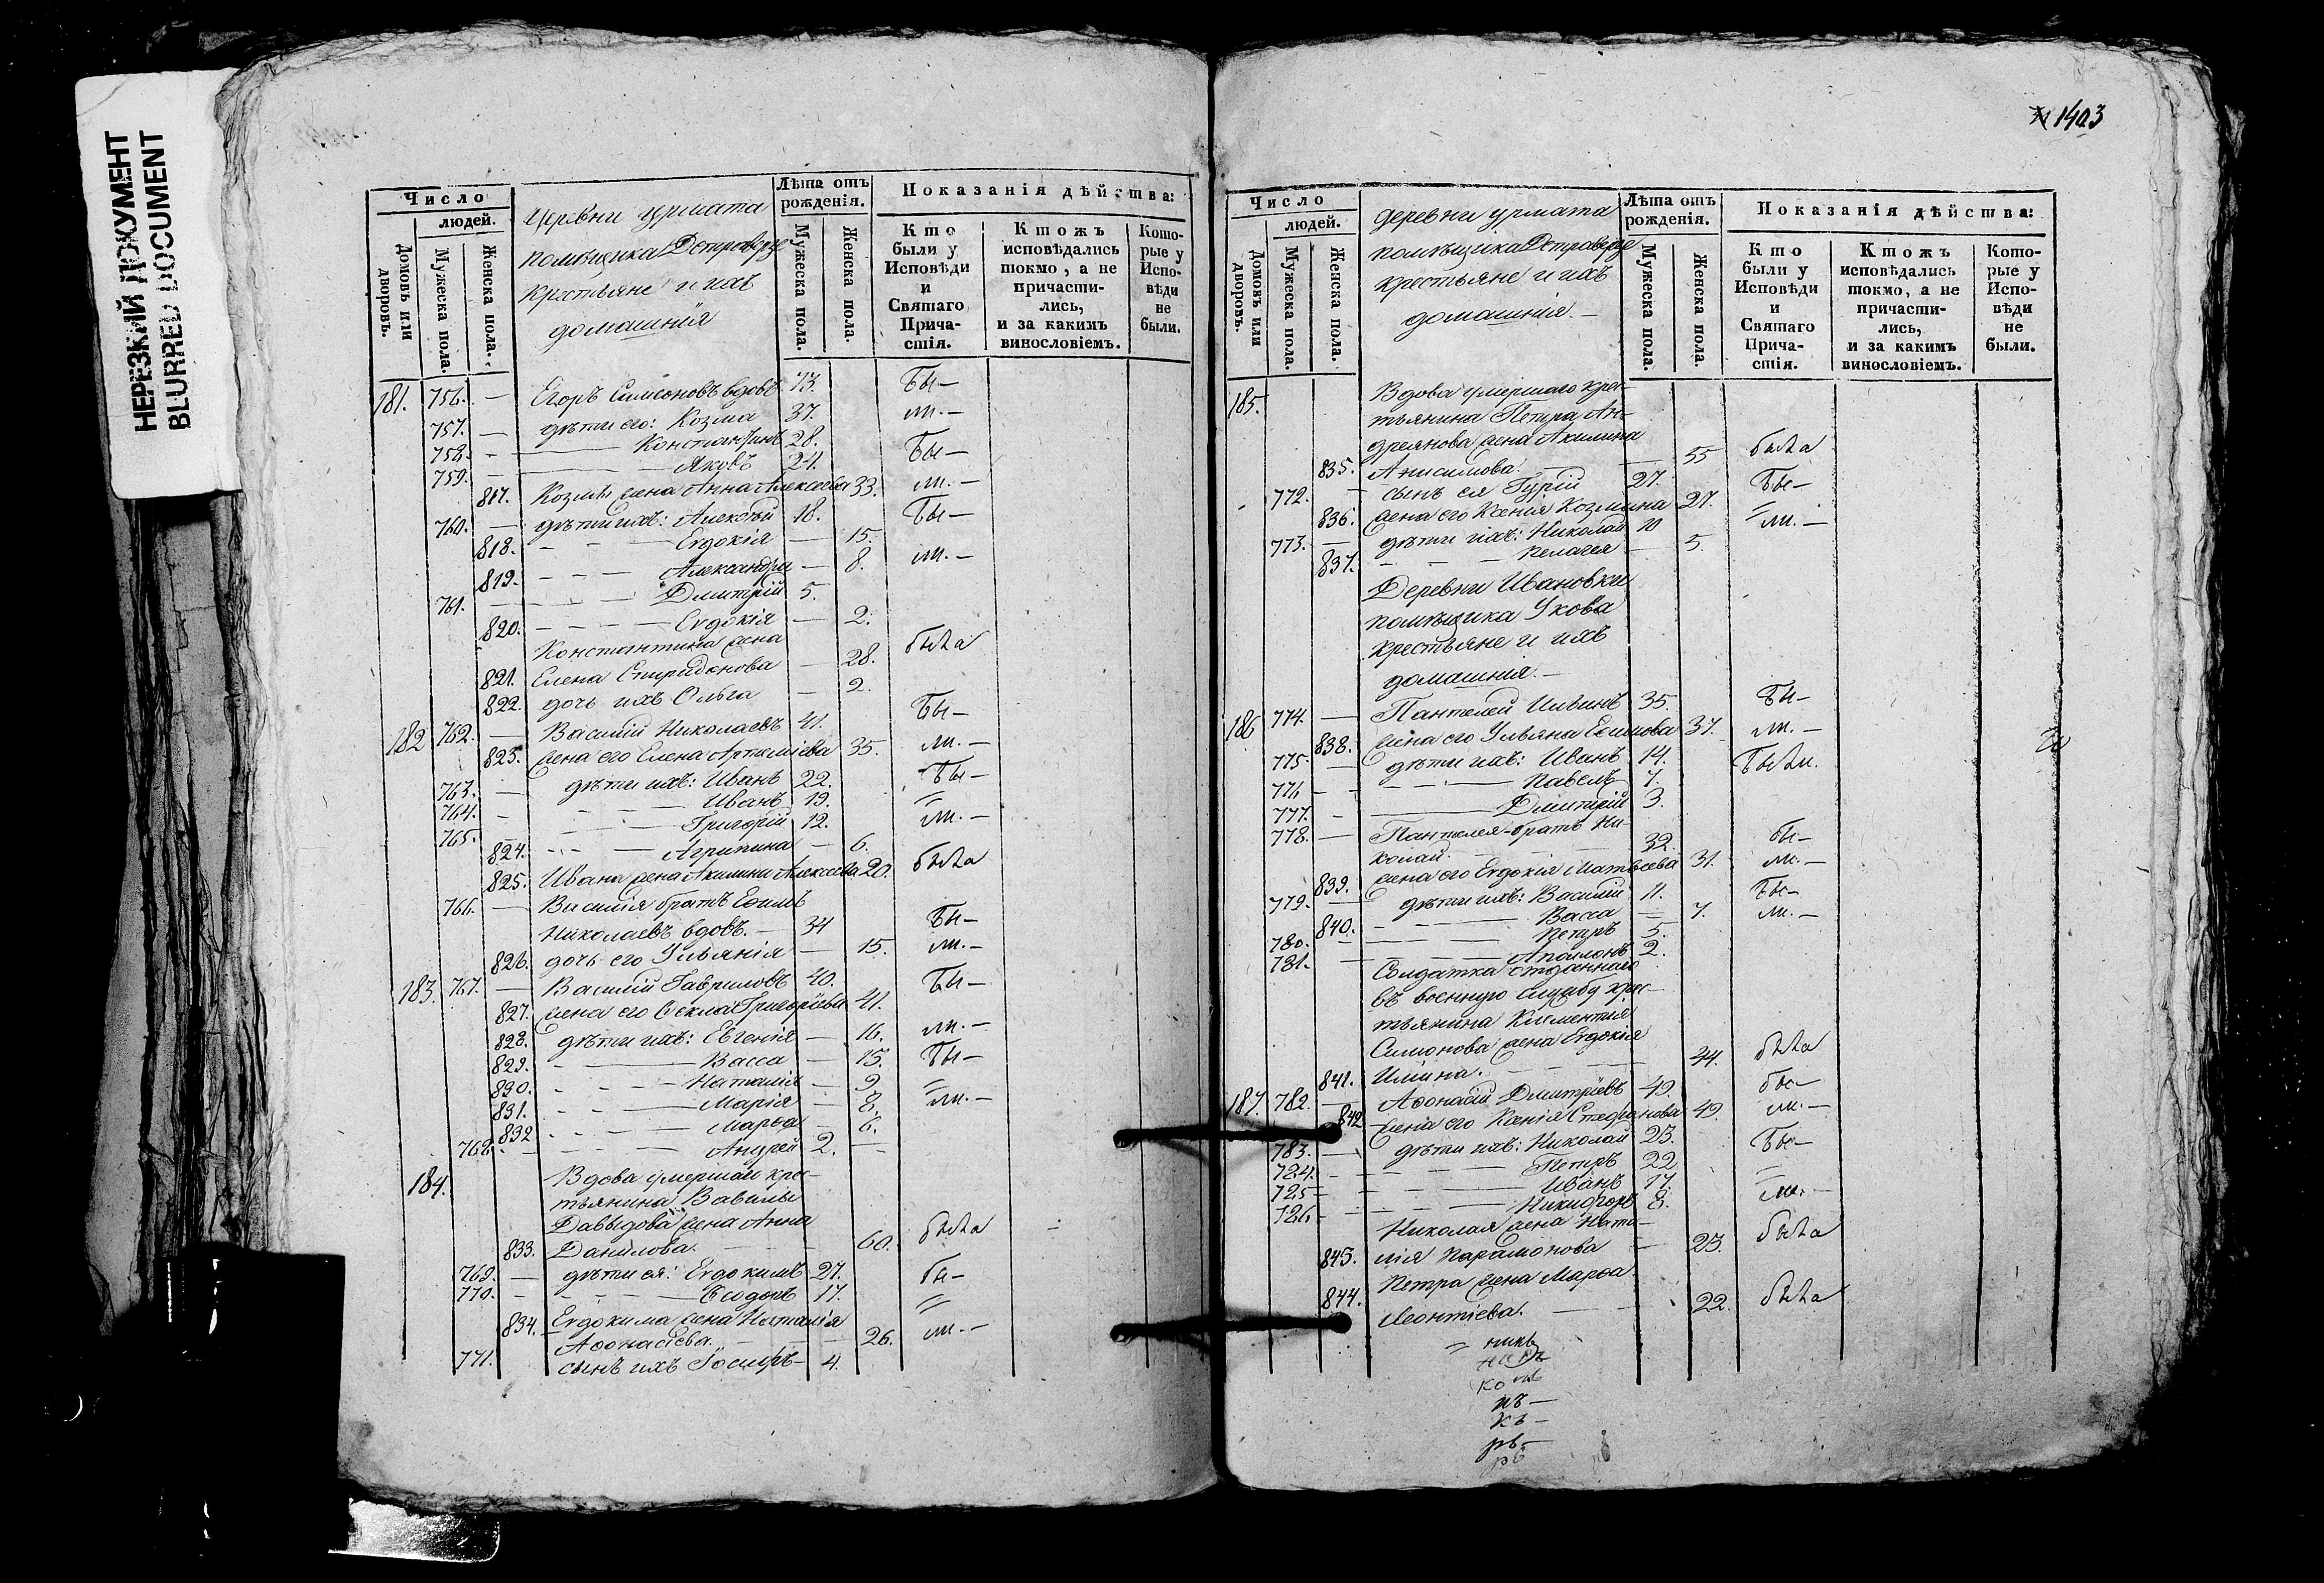 НЕРЕЗКИЙ ДОКУМЕНТ
BLURRED DOCUMENT
Число
людей.
Домовъ или дворовъ.
Мужеска пола.
Женска пола.
деревни урмата
помѣщика
крестьяне и ихъ
домашнія
Лѣта отъ рожденія.
Мужеска пола.
Женска пола.
Показанія дѣйства:
Кто были у Исповѣди и Святаго Причастія.
Ктожъ исповѣдались токмо, а не причастились, и за какимъ винословіемъ.
Которые у Исповѣди не были.
181. 756. — Егоръ Симеоновъ вдовъ 73. Бы—
757. — дѣти его: Козма 37. ли.—
758. — Константинъ 28.
759. — Яковъ 24. Бы—
817. Козмы жена Анна Алексѣева 33. ли.—
760. — дѣти ихъ: Алексѣй 18. Бы—
818. Евдокія — 15.
819. Александра — 8. ли.—
761. Дмитрій 5.
820. Евдокія — 2.
Константина жена
821. Елена Спиридонова — 28. была
822. дочь ихъ Ольга — 2.
182 762. — Василій Николаевъ 41. Бы—
823. жена его Елена Артеміева 35. ли.—
763. — дѣти ихъ: Иванъ 22. Бы—
764. Иванъ 19. =
765. Григорій 12. ли.—
824. Агрипина — 6.
825. Ивана жена Акилина Алексѣева 20. была
766. — Василія братъ Ефимъ
Николаевъ вдовъ. — 34 Бы—
826. дочь его Ульянія — 15. ли.—
183. 767. — Василій Гавриловъ 40. Бы—
827. жена его Ѳекла Григоріева 41.
828. дѣти ихъ: Евгенія — 16. ли.—
829. Васса — 15. Бы—
830. Наталія — 9 =
831. Марія — 8. ли.—
832 Марѳа — 6.
768. Андрей 2. —
184. Вдова умершаго крес-
тьянина Вавилы
Давыдова жена Анна
833. Данилова. 60. была
769. — дѣти ея: Евдокимъ 27. бы—
770. Ѳедоръ 17. =
834. Евдокима жена Наталія
Аѳонасіева. 26. ли.—
771. сынъ ихъ Іосифъ— 4.
1403
Число
людей.
Домовъ или дворовъ.
Мужеска пола.
Женска пола.
деревни урмата
помѣщика
крестьяне и ихъ
домашнія.—
Лѣта отъ рожденія.
Мужеска пола.
Женска пола.
Показанія дѣйства:
Кто были у Исповѣди и Святаго Причастія.
Ктожъ исповѣдались токмо, а не причастились, и за какимъ винословіемъ.
Которые у Исповѣди не были.
185. Вдова умершаго крес-
тьянина Петра Ан-
дреянова жена Акилина
835. Анисимова. 55 была
772. — сынъ ея Гурій 27. Бы—
836. жена его Ксенія Козмина 27. =ли.—
773. — дѣти ихъ: Николай 10
837. Пелагея — 5.
Деревни Ивановки
помѣщика Ухова
крестьяне и ихъ
домашнія.—
186 774. — Пантелей Ильинъ 35. Бы—
838. жена его Ульяна Ефимова 37. ли.—
775. — дѣти ихъ: Иванъ 14. Были.
776 — Павелъ 7.
777. — Дмитрій 3.
778. — Пантелея братъ Ни-
колай. 32. бы—
839. жена его Евдокія Матвѣева 31. ли.—
779. — дѣти ихъ: Василій 11. Бы—
840. Васса — 7. ли.—
780. — Петръ 5.
781. — Аполонъ 2.
Солдатка отданнаго
въ военную службу крес-
тьянина Климентія
Симонова жена Евдокія
841. Ильина. 44. была
187. 782. — Аѳонасій Дмитріевъ 49. бы—
842 жена его Ксенія Стефанова 49. ли.—
783. — дѣти ихъ: Николай 23. Бы—
724. — Петръ 22 =
725 — Иванъ 17. =
726 — Никифоръ 8. ли.—
Николая жена Ната-
843. лія Парамонова — 23. была
Петра жена Марѳа
844. Леонтіева. 22. была